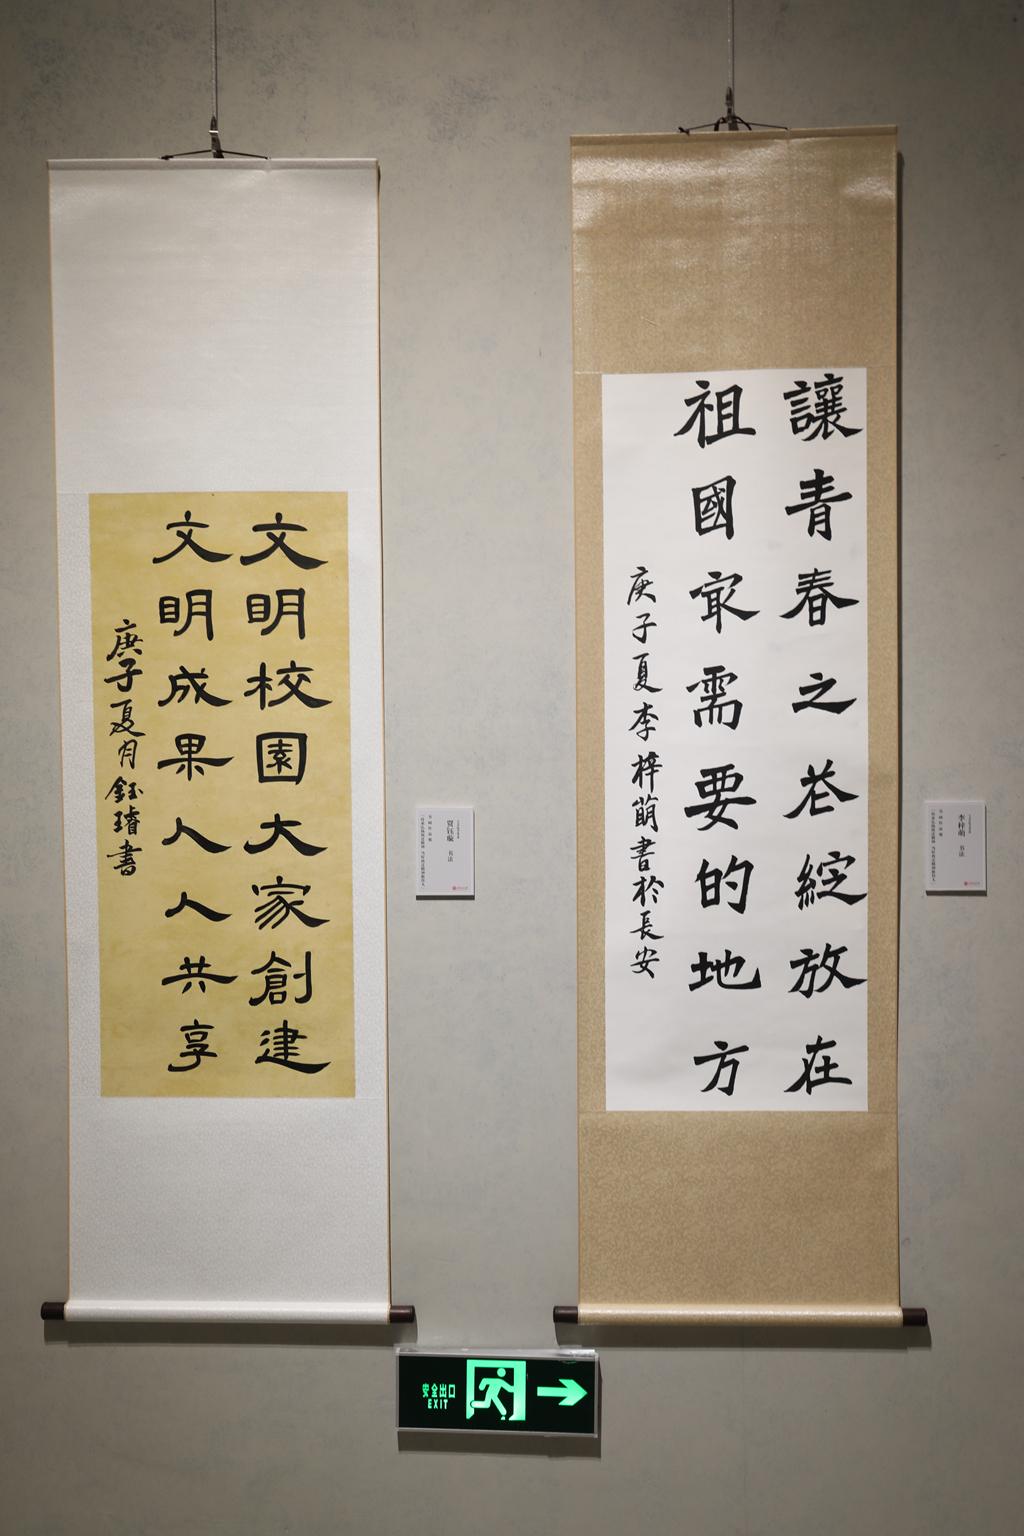 讓青春之花綻放在
祖國㝡需要的地方
庚子夏李梓萌書於長安
文明校園大家創建
文明成果人人共享
庚子夏月鈺璿書
李梓萌 书法
贾钰璇 书法
安全出口
EXIT